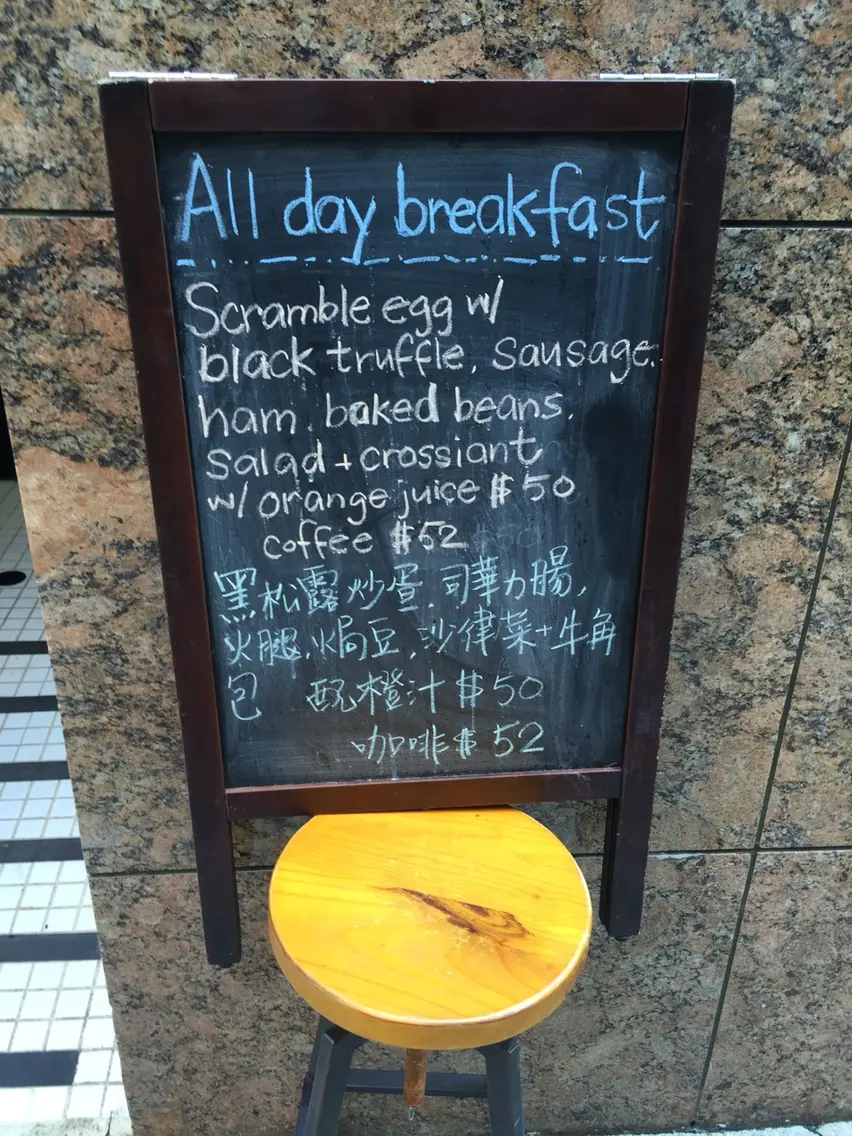 All day breakfast
Scramble egg w/
black truffle, sausage,
ham, baked beans,
salad + crossiant
w/ orange juice $50
coffee $52
黑松露炒蛋,司華力腸,
火腿,焗豆,沙律菜+牛角
包 配橙汁 $50
咖啡 $52